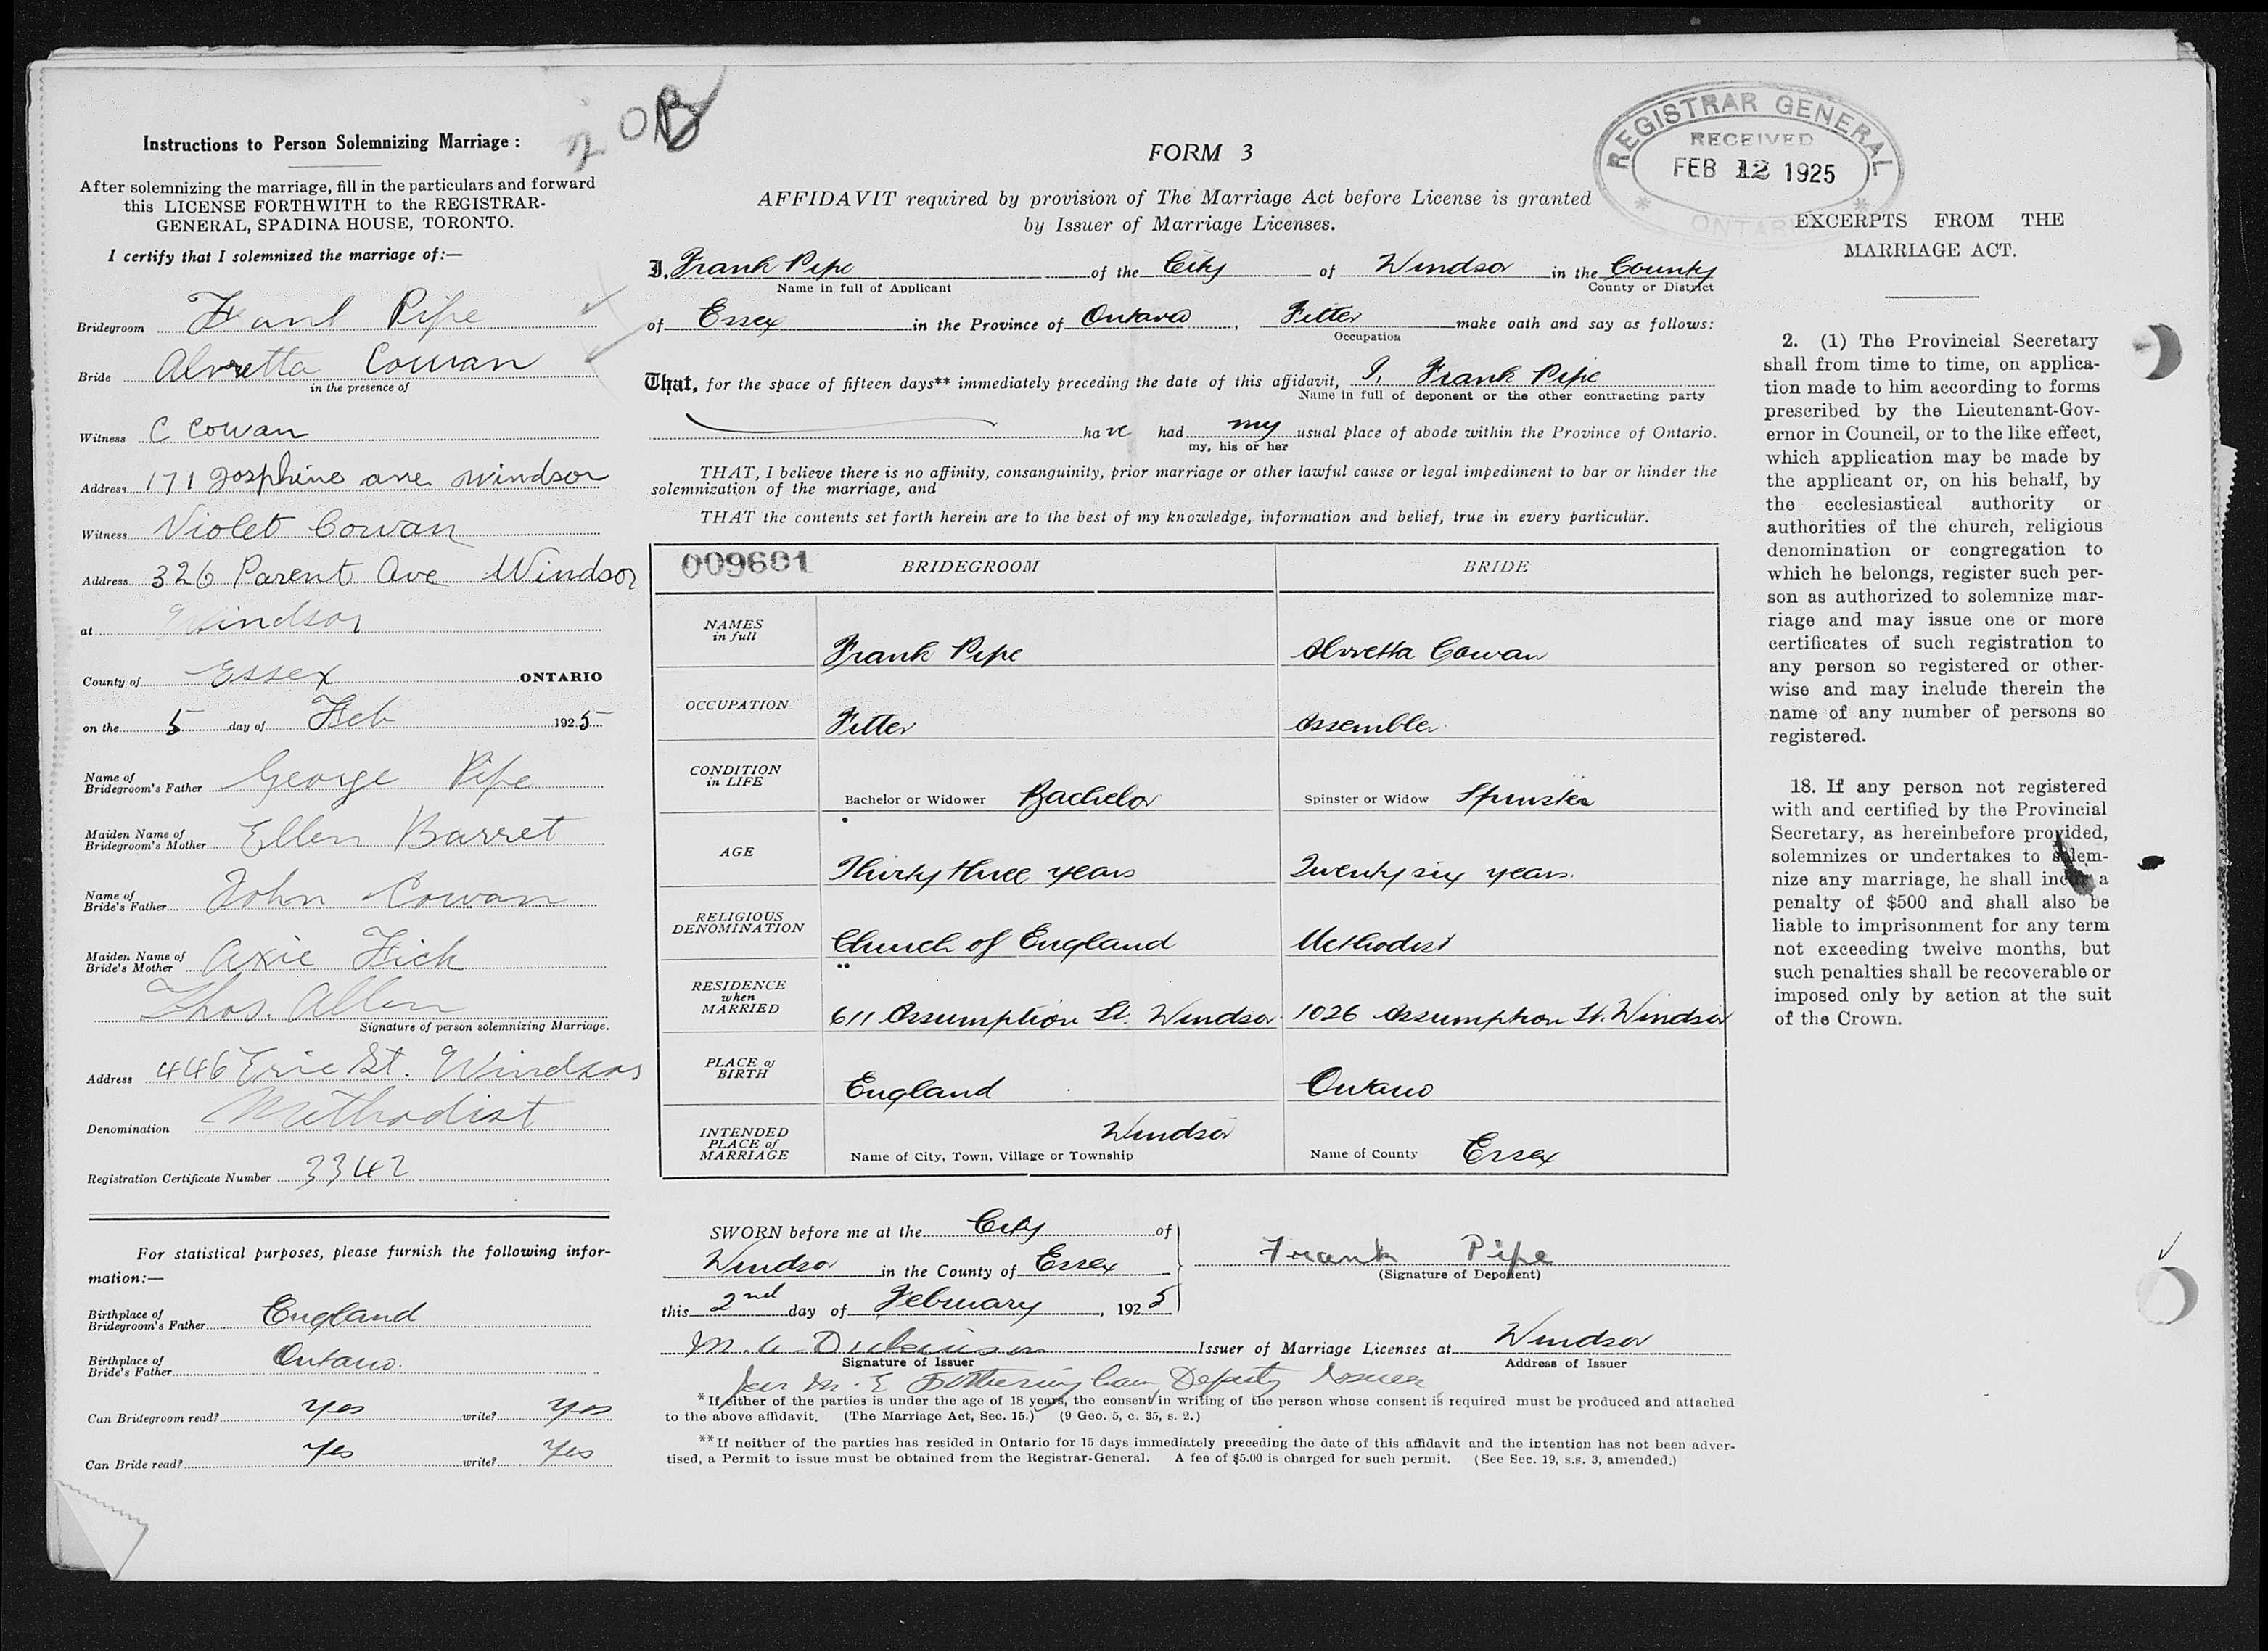 Instructions to Person Solemnizing Marriage :
After solemnizing the marriage, fill in the particulars and forward
this LICENSE FORTHWITH to the REGISTRAR-
GENERAL, SPADINA HOUSE, TORONTO.
I certify that I solemnized the marriage of:—
Bridegroom Frank Pipe
Bride Alvretta Cowan
in the presence of
Witness C Cowan
Address 171 Josphine ave. Windsor
Witness Violet Cowan
Address 326 Parent Ave Windsor
at Windsor
County of Essex ONTARIO
on the 5 day of Feb 1925
Name of
Bridegroom's Father George Pipe
Maiden Name of
Bridegroom's Mother Ellen Barret
Name of
Bride's Father John Cowan
Maiden Name of
Bride's Mother Axie Fick
Thos. Allen
Signature of person solemnizing Marriage.
Address 446 Erie St. Windsor
Denomination Methodist
Registration Certificate Number 3342
For statistical purposes, please furnish the following infor-
mation:—
Birthplace of
Bridegroom's Father England
Birthplace of
Bride's Father Ontario.
Can Bridegroom read? Yes write? Yes
Can Bride read? Yes write? Yes
FORM 3
AFFIDAVIT required by provision of The Marriage Act before License is granted
by Issuer of Marriage Licenses.
I, Frank Pipe of the City of Windsor in the County
Name in full of Applicant County or District
of Essex in the Province of Ontario, Fitter make oath and say as follows:
Occupation
That, for the space of fifteen days** immediately preceding the date of this affidavit, I, Frank Pipe
Name in full of deponent or the other contracting party
have had my usual place of abode within the Province of Ontario.
my, his or her
THAT, I believe there is no affinity, consanguinity, prior marriage or other lawful cause or legal impediment to bar or hinder the
solemnization of the marriage, and
THAT the contents set forth herein are to the best of my knowledge, information and belief, true in every particular.
009601 BRIDEGROOM BRIDE
NAMES
in full Frank Pipe Alvretta Cowan
OCCUPATION Fitter Assembler
CONDITION
in LIFE Bachelor or Widower Bachelor Spinster or Widow Spinster
AGE Thirty three years Twenty six years.
RELIGIOUS
DENOMINATION Church of England Methodist
RESIDENCE
when
MARRIED 611 Assumption St. Windsor 1026 Assumption St. Windsor
PLACE of
BIRTH England Ontario
INTENDED
PLACE of
MARRIAGE Name of City, Town, Village or Township Windsor Name of County Essex
SWORN before me at the City of
Windsor in the County of Essex
this 2nd day of February, 1925
Frank Pipe
(Signature of Deponent)
M. A. Dickinson Issuer of Marriage Licenses at Windsor
Signature of Issuer Address of Issuer
per M. E Fotheringham Deputy Issuer
*If either of the parties is under the age of 18 years, the consent in writing of the person whose consent is required must be produced and attached
to the above affidavit. (The Marriage Act, Sec. 15.) (9 Geo. 5, c. 35, s. 2.)
**If neither of the parties has resided in Ontario for 15 days immediately preceding the date of this affidavit and the intention has not been adver-
tised, a Permit to issue must be obtained from the Registrar-General. A fee of $5.00 is charged for such permit. (See Sec. 19, s.s. 3, amended.)
REGISTRAR GENERAL
RECEIVED
FEB 12 1925
ONTARIO
EXCERPTS FROM THE
MARRIAGE ACT.
2. (1) The Provincial Secretary
shall from time to time, on applica-
tion made to him according to forms
prescribed by the Lieutenant-Gov-
ernor in Council, or to the like effect,
which application may be made by
the applicant or, on his behalf, by
the ecclesiastical authority or
authorities of the church, religious
denomination or congregation to
which he belongs, register such per-
son as authorized to solemnize mar-
riage and may issue one or more
certificates of such registration to
any person so registered or other-
wise and may include therein the
name of any number of persons so
registered.
18. If any person not registered
with and certified by the Provincial
Secretary, as hereinbefore provided,
solemnizes or undertakes to solem-
nize any marriage, he shall incur a
penalty of $500 and shall also be
liable to imprisonment for any term
not exceeding twelve months, but
such penalties shall be recoverable or
imposed only by action at the suit
of the Crown.